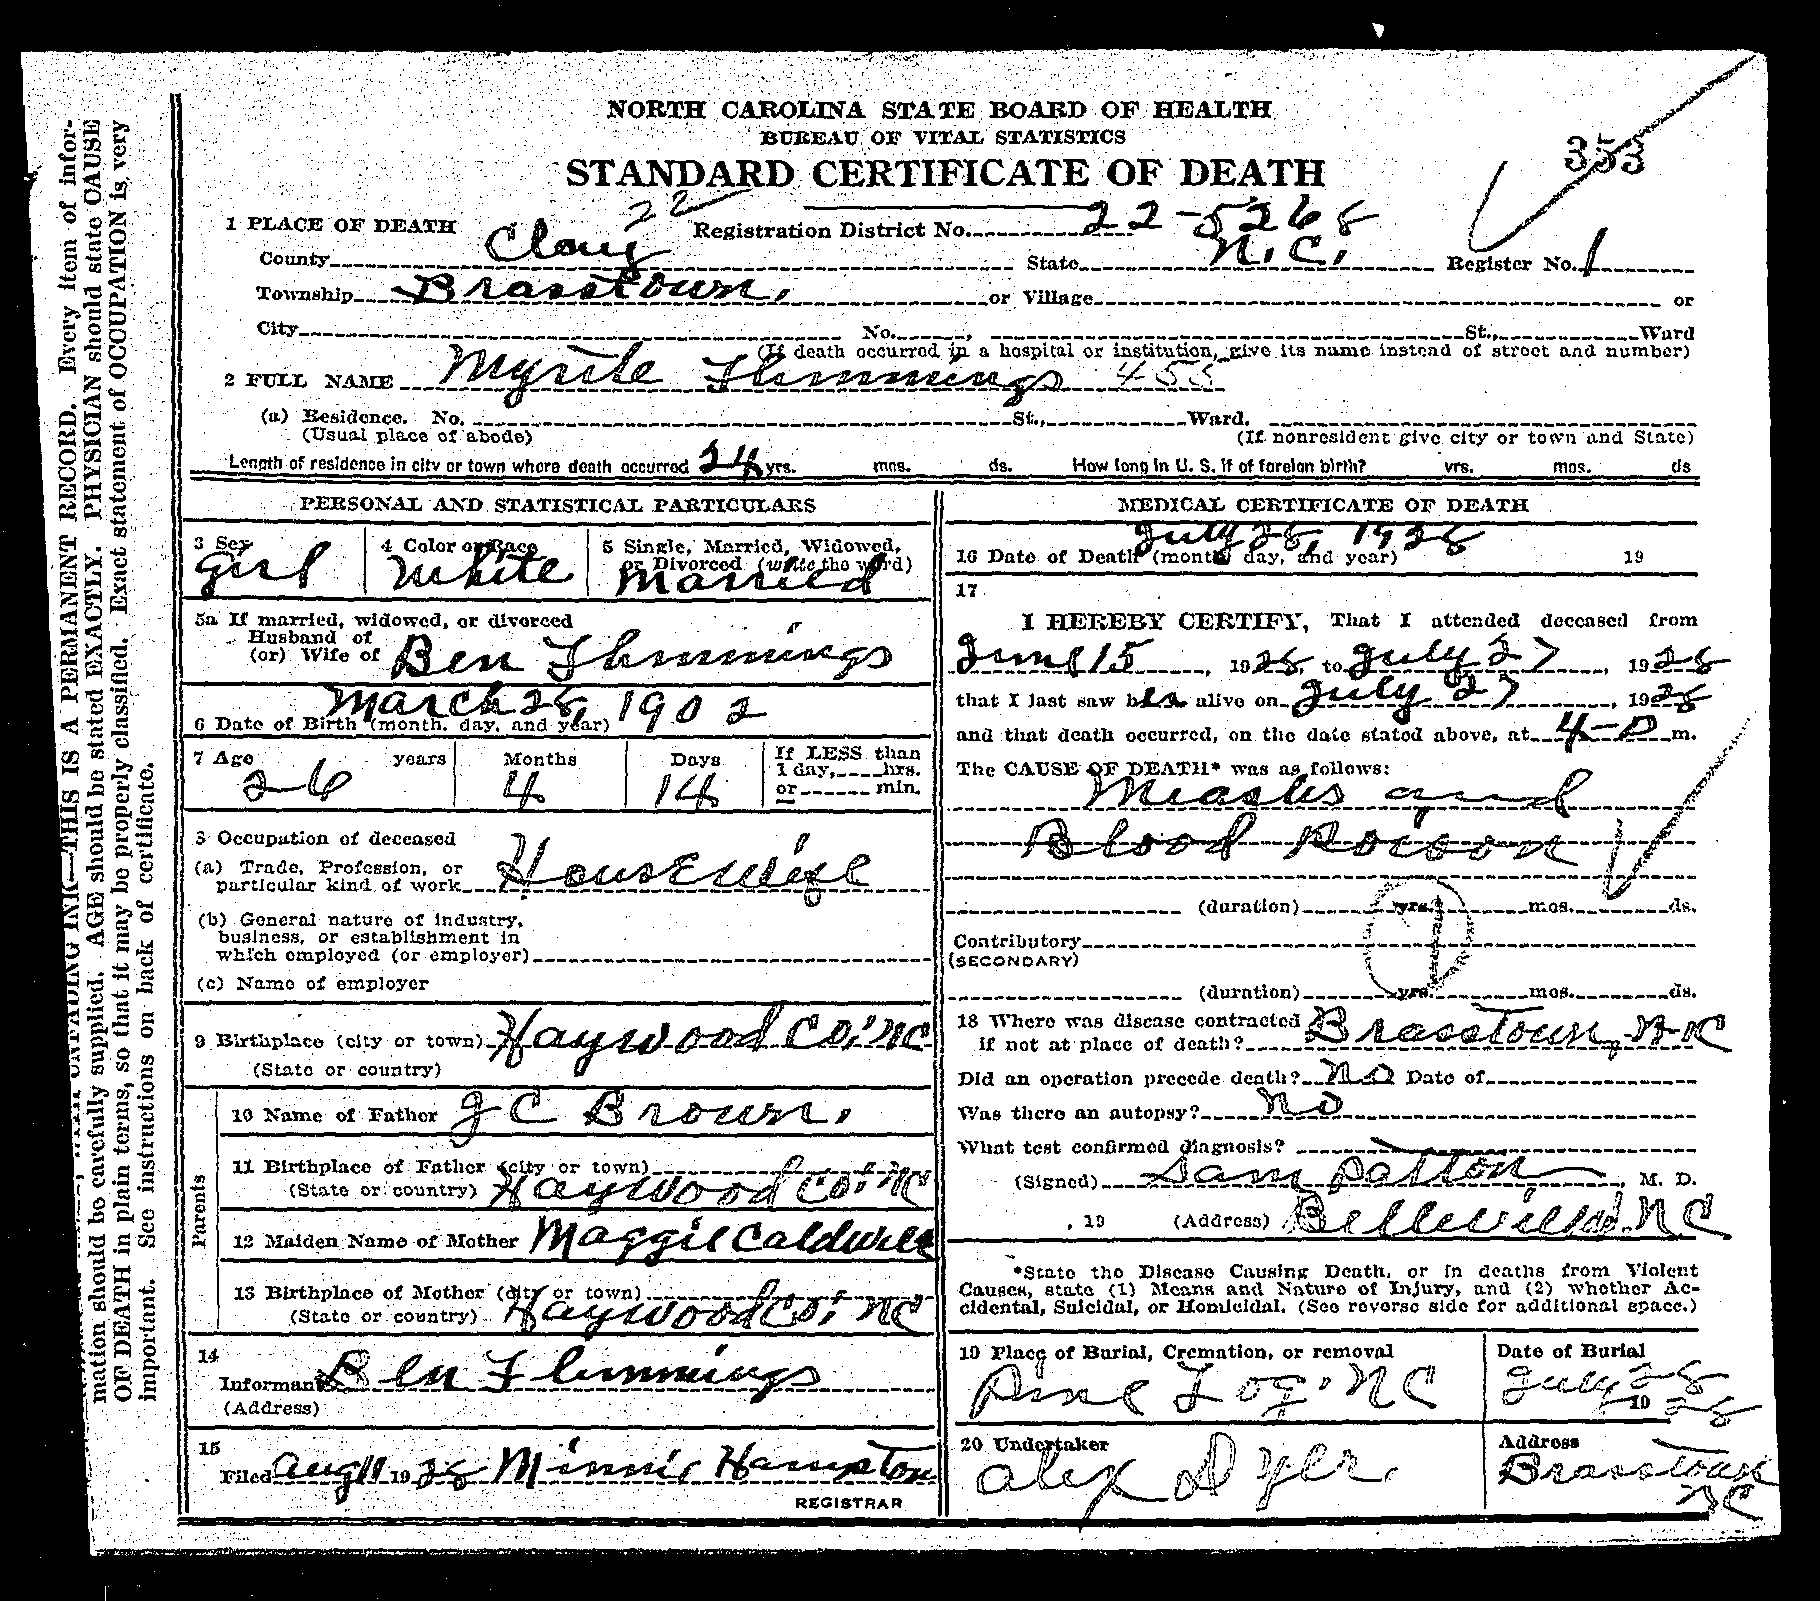 mation should be carefully supplied. AGE should be stated EXACTLY. PHYSICIAN should state CAUSE
OF DEATH in plain terms, so that it may be properly classified. Exact statement of OCCUPATION is very
important. See instructions on back of certificate.
UNFADING INK—THIS IS A PERMANENT RECORD. Every item of infor-
NORTH CAROLINA STATE BOARD OF HEALTH
BUREAU OF VITAL STATISTICS
STANDARD CERTIFICATE OF DEATH
353
22
1 PLACE OF DEATH Registration District No. 22-5268
County Clay State N.C. Register No. 1
Township Brasstown. or Village or
City No. , St., Ward
(If death occurred in a hospital or institution, give its name instead of street and number)
2 FULL NAME Myrtle Flemmings 455
(a) Residence. No. St., Ward.
(Usual place of abode) (If nonresident give city or town and State)
Length of residence in city or town where death occurred 24 yrs. mos. ds. How long in U. S. if of foreign birth? yrs. mos. ds
PERSONAL AND STATISTICAL PARTICULARS
3 Sex Girl
4 Color or Race White
5 Single, Married, Widowed, or Divorced (write the word) Married
5a If married, widowed, or divorced
Husband of
(or) Wife of Ben Flemmings
6 Date of Birth (month, day, and year) March 28, 1902
7 Age 26 years Months 4 Days 14 If LESS than
1 day, hrs.
or min.
8 Occupation of deceased
(a) Trade, Profession, or
particular kind of work Housewife
(b) General nature of industry,
business, or establishment in
which employed (or employer)
(c) Name of employer
9 Birthplace (city or town) Haywood Co. NC
(State or country)
Parents
10 Name of Father J C Brown.
11 Birthplace of Father (city or town)
(State or country) Haywood Co. NC
12 Maiden Name of Mother Maggie Caldwell
13 Birthplace of Mother (city or town)
(State or country) Haywood Co. NC
14
Informant Ben Flemmings
(Address)
15
Filed Aug 11 1928 Minnie Hampton
REGISTRAR
MEDICAL CERTIFICATE OF DEATH
16 Date of Death (month, day, and year) July 28, 1928 19
17
I HEREBY CERTIFY, That I attended deceased from
June 15, 1928, to July 27, 1928
that I last saw her alive on July 27, 1928
and that death occurred, on the date stated above, at 4- m.
The CAUSE OF DEATH* was as follows:
Measles and
Blood Poison
(duration) yrs. mos. ds.
Contributory
(SECONDARY)
(duration) yrs. mos. ds.
18 Where was disease contracted
if not at place of death? Brasstown, NC
Did an operation precede death? No Date of
Was there an autopsy? No
What test confirmed diagnosis?
(Signed) Sam Patton, M. D.
, 19 (Address) NC
*State the Disease Causing Death, or in deaths from Violent
Causes, state (1) Means and Nature of Injury, and (2) whether Ac-
cidental, Suicidal, or Homicidal. (See reverse side for additional space.)
19 Place of Burial, Cremation, or removal Date of Burial
Pine Log. NC July 28
19 28
20 Undertaker Address
Alex Dyer. Brasstown
NC